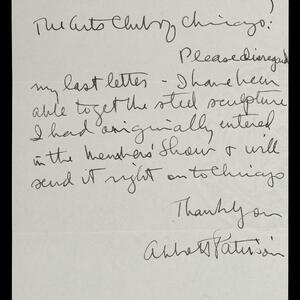 The Arts Club of Chicago:
Please disregard
my last letter - I have been
able to get the steel sculpture
I had originally entered
in the Members' Show & will
send it right on to Chicago
Thank you
Abbott Pattison